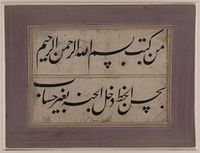 من کتب بسم الله الرحمن الرحیم
بحسن الخط دخل الجنة بغیر حساب